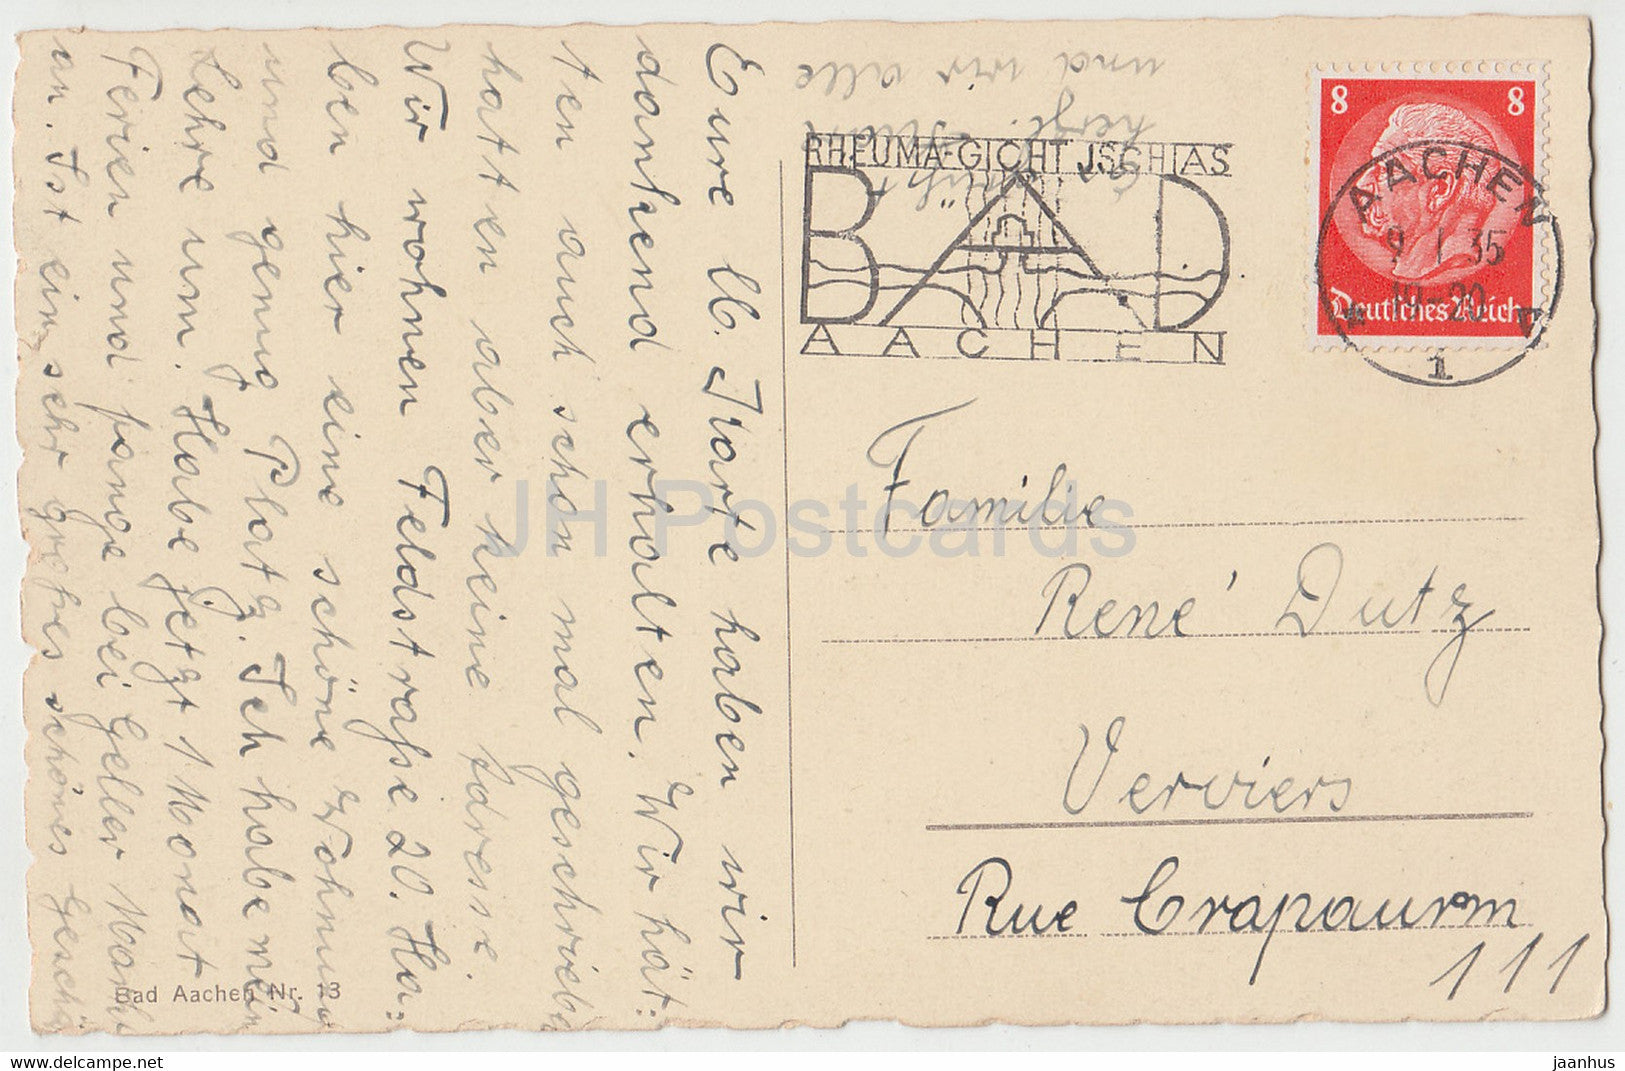 Eure lb. Karte haben wir
dankend erhalten. Wir hät=
ten auch schon mal geschrieben
hatten aber keine Adresse.
Wir wohnen Feldstrasse 20. Ha=
ben hier eine schöne Wohnung
und genug Platz. Ich habe mein
Lehre um. Habe jetzt 1 Monat
Ferien und fange bei Geller Mark
an. Ist ein sehr großes schönes Geschä
und wir alle
herzl.
RHEUMA-GICHT JSCHIAS
BAD
AACHEN
8 8
Deutsches Reich
AACHEN
9. 1. 35
19-20
1
Familie
René Dutz
Verviers
Rue Crapaurm
111
Bad Aachen Nr. 13
JH Postcards
www.delcampe.net
jaanhus